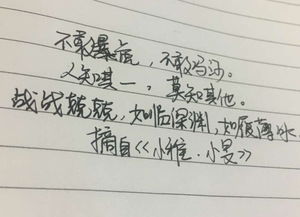 不敢暴虎，不敢冯河。
人知其一，莫知其他。
战战兢兢，如临深渊，如履薄冰
摘自《小雅·小旻》